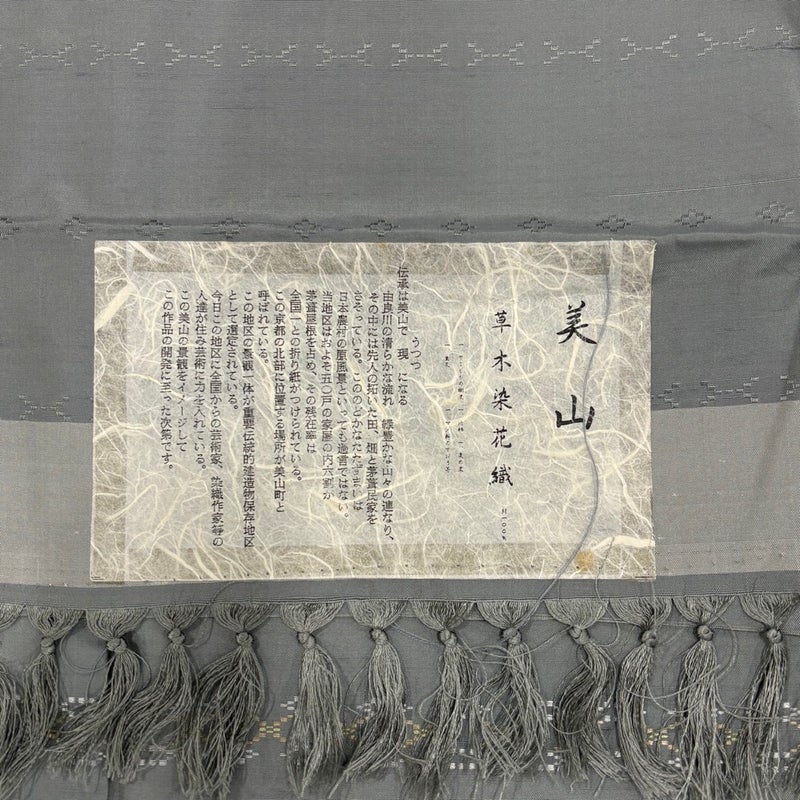 美山
草木染花織
絹一〇〇%
伝承は美山で　現（うつつ）になる
由良川の清らかな流れ　緑豊かな山々の連なり、
その中には先人の拓いた田、畑と茅葺民家を
さそっている。こののどかなたたずまいは
日本農村の原風景といっても過言ではない。
当地区はおよそ五〇戸の家屋の内六割が
茅葺屋根を占め、その残在率は
全国一との折り紙がつけられている。
この京都の北部に位置する場所が美山町と
呼ばれている。
この地区の景観一体が重要伝統的建造物保存地区
として選定されている。
今日この地区に全国からの芸術家、染織作家等の
人達が住み芸術に力を入れている。
この美山の景観をイメージして
この作品の開発に至った次第です。